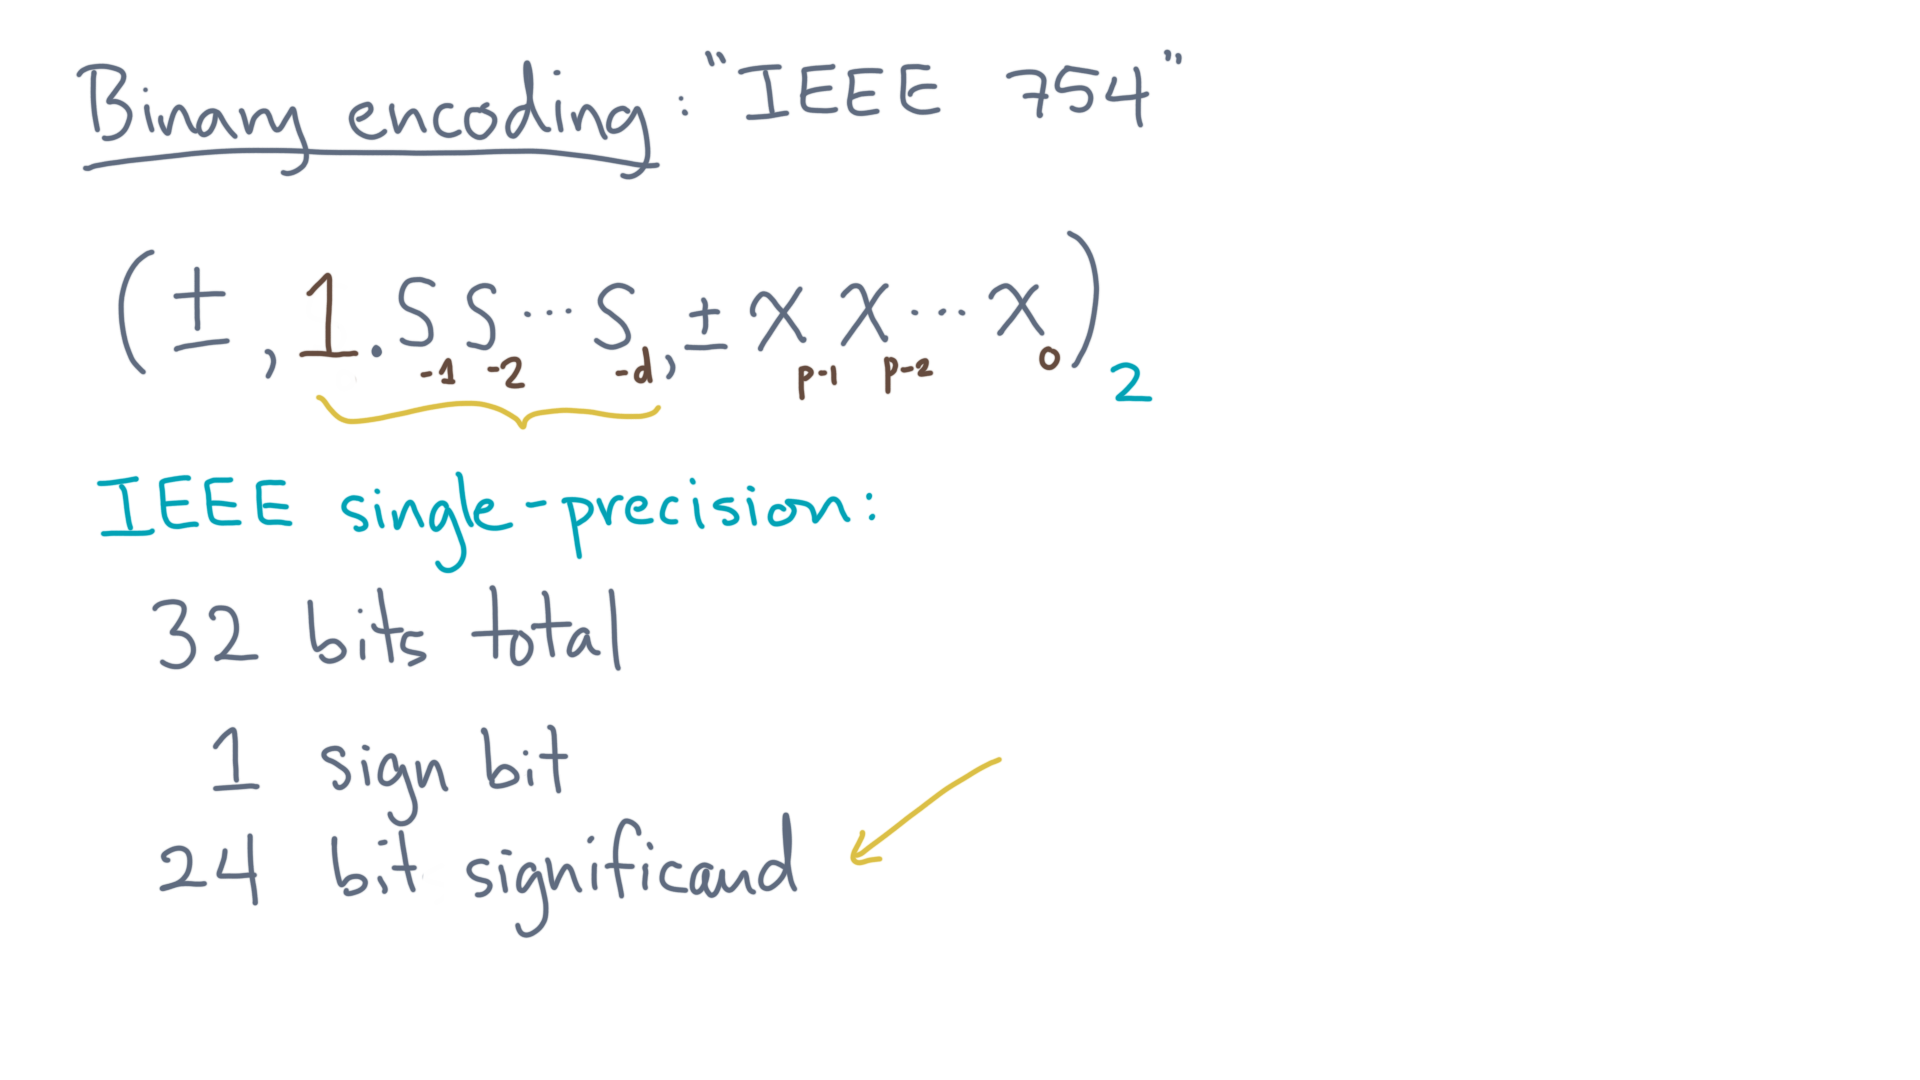 Binary encoding: "IEEE 754"
(±, 1.S₋₁S₋₂⋯S₋d, ±xₚ₋₁xₚ₋₂⋯x₀)₂
IEEE single-precision:
32 bits total
1 sign bit
24 bit significand